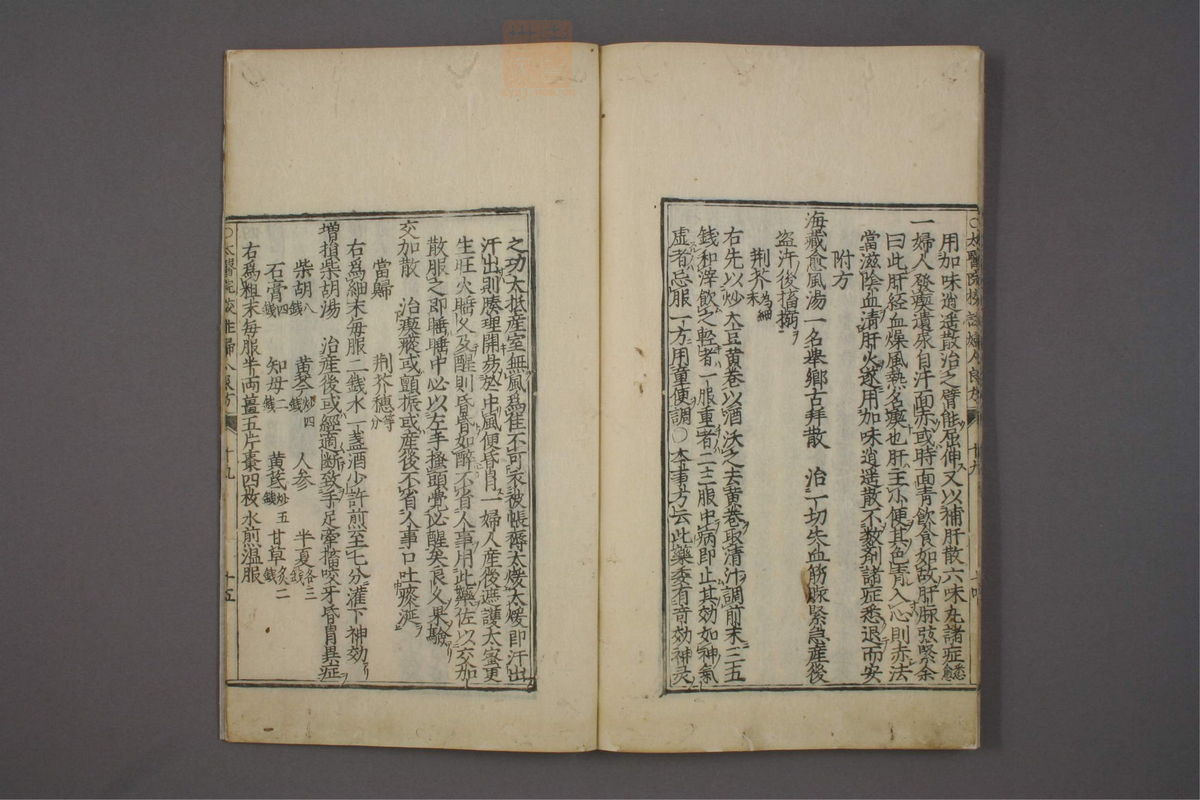 太醫院校註婦人良方 十九 十四
用加味逍遥散治之臂能屈伸又以補肝散六味丸諸症悉愈
一婦人發瘈遺尿自汗面赤或時面青飲食如故肝脉弦緊余
曰此肝経血燥風熱名瘈也肝主小便其色青入心則赤法
當滋陰血清肝火遂用加味逍遥散不数剤諸症悉退而安
附方
海藏愈風湯一名舉鄉古拜散 治一切失血筋脉緊急産後
盗汗後搐搦
荆芥為細末
右先以炒大豆黄卷以酒沃之去黄卷取清汁調前末三五
錢和滓飲之輕者一服重者二三服中病即止其効如神氣
虚者忌服一方用童便調〇本事方云此藥委有奇効神灵
之功大抵産室無風爲佳不可衣被帳褥太煖太煖即汗出
汗出則腠理開易於中風便昏胃一婦人産後遮護太蜜更
生旺火睡久及醒則昏昏如醉不省人事用此藥佐以交加
散服之即睡睡中必以左手搔頭覺必醒矣良久果驗
交加散 治瘈瘲或顫振或産後不省人事口吐痰涎
當歸 荆芥穗等分
右爲細末毎服二錢水一盞酒少許煎至七分灌下神効
増損柴胡湯 治産後或經適断致手足牽搐咬牙昏胃異症
柴胡八錢 黄芩炒四錢 人参 半夏各三錢
石膏四錢 知母二錢 黄芪炒五錢 甘草炙二錢
右爲粗末毎服半両薑五片棗四枚水煎温服
〇太醫院校註婦人良方 十九 十五